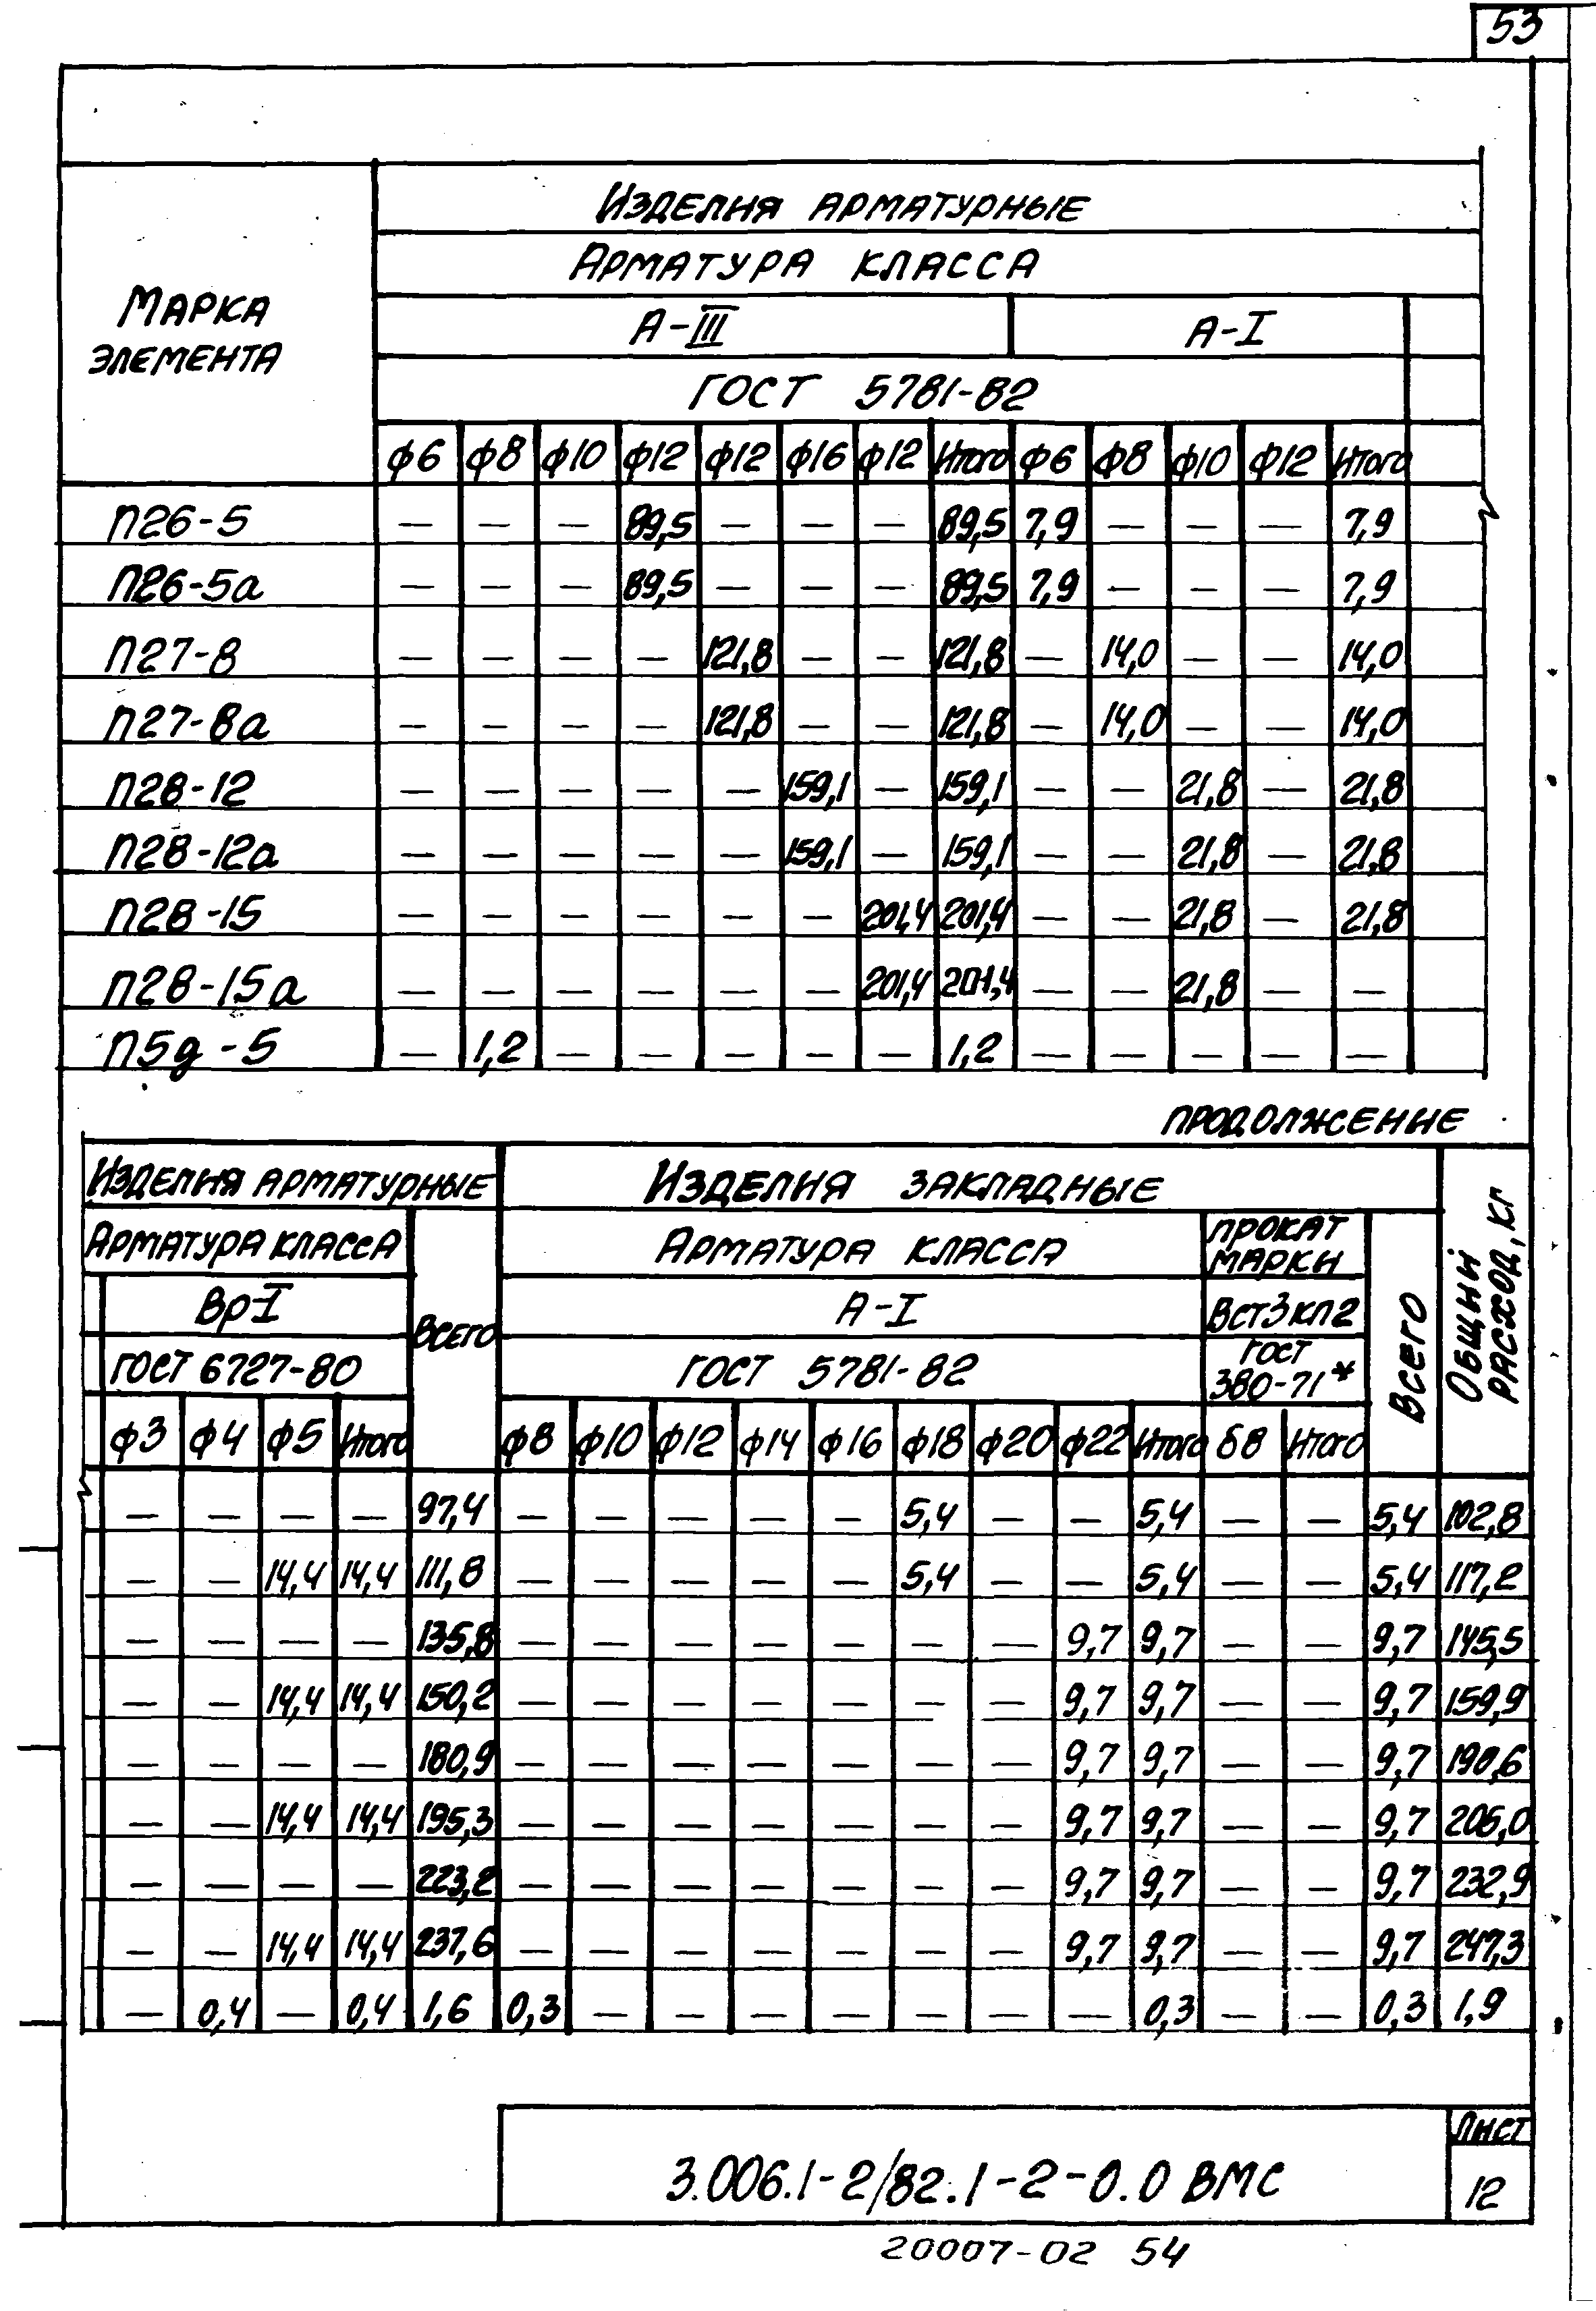 53
Изделия арматурные
Арматура класса
Марка элемента
А-III А-I
ГОСТ 5781-82
ф6 ф8 ф10 ф12 ф12 ф16 ф12 Итого ф6 ф8 ф10 ф12 Итого
П26-5 — — — 89,5 — — — 89,5 7,9 — — — 7,9
П26-5а — — — 89,5 — — — 89,5 7,9 — — — 7,9
П27-8 — — — — 121,8 — — 121,8 — 14,0 — — 14,0
П27-8а — — — — 121,8 — — 121,8 — 14,0 — — 14,0
П28-12 — — — — — 159,1 — 159,1 — — 21,8 — 21,8
П28-12а — — — — — 159,1 — 159,1 — — 21,8 — 21,8
П28-15 — — — — — — 201,4 201,4 — — 21,8 — 21,8
П28-15а — — — — — — 201,4 201,4 — — 21,8 — —
П5д-5 — 1,2 — — — — — 1,2 — — — — —
продолжение
Изделия арматурные Изделия закладные Общий расход, кг
Арматура класса Всего Арматура класса прокат марки Всего
Вр-I А-I Вст3кп2
ГОСТ 6727-80 ГОСТ 5781-82 гост 380-71*
ф3 ф4 ф5 Итого ф8 ф10 ф12 ф14 ф16 ф18 ф20 ф22 Итого δ8 Итого
— — — — 97,4 — — — — — 5,4 — — 5,4 — — 5,4 102,8
— — 14,4 14,4 111,8 — — — — — 5,4 — — 5,4 — — 5,4 117,2
— — — — 135,8 — — — — — — — 9,7 9,7 — — 9,7 145,5
— — 14,4 14,4 150,2 — — — — — — — 9,7 9,7 — — 9,7 159,9
— — — — 180,9 — — — — — — — 9,7 9,7 — — 9,7 190,6
— — 14,4 14,4 195,3 — — — — — — — 9,7 9,7 — — 9,7 205,0
— — — — 223,2 — — — — — — — 9,7 9,7 — — 9,7 232,9
— — 14,4 14,4 237,6 — — — — — — — 9,7 9,7 — — 9,7 247,3
— 0,4 — 0,4 1,6 0,3 — — — — — — — 0,3 — — 0,3 1,9
3.006.1-2/82.1-2-0.0 ВМС
Лист
12
20007-02 54